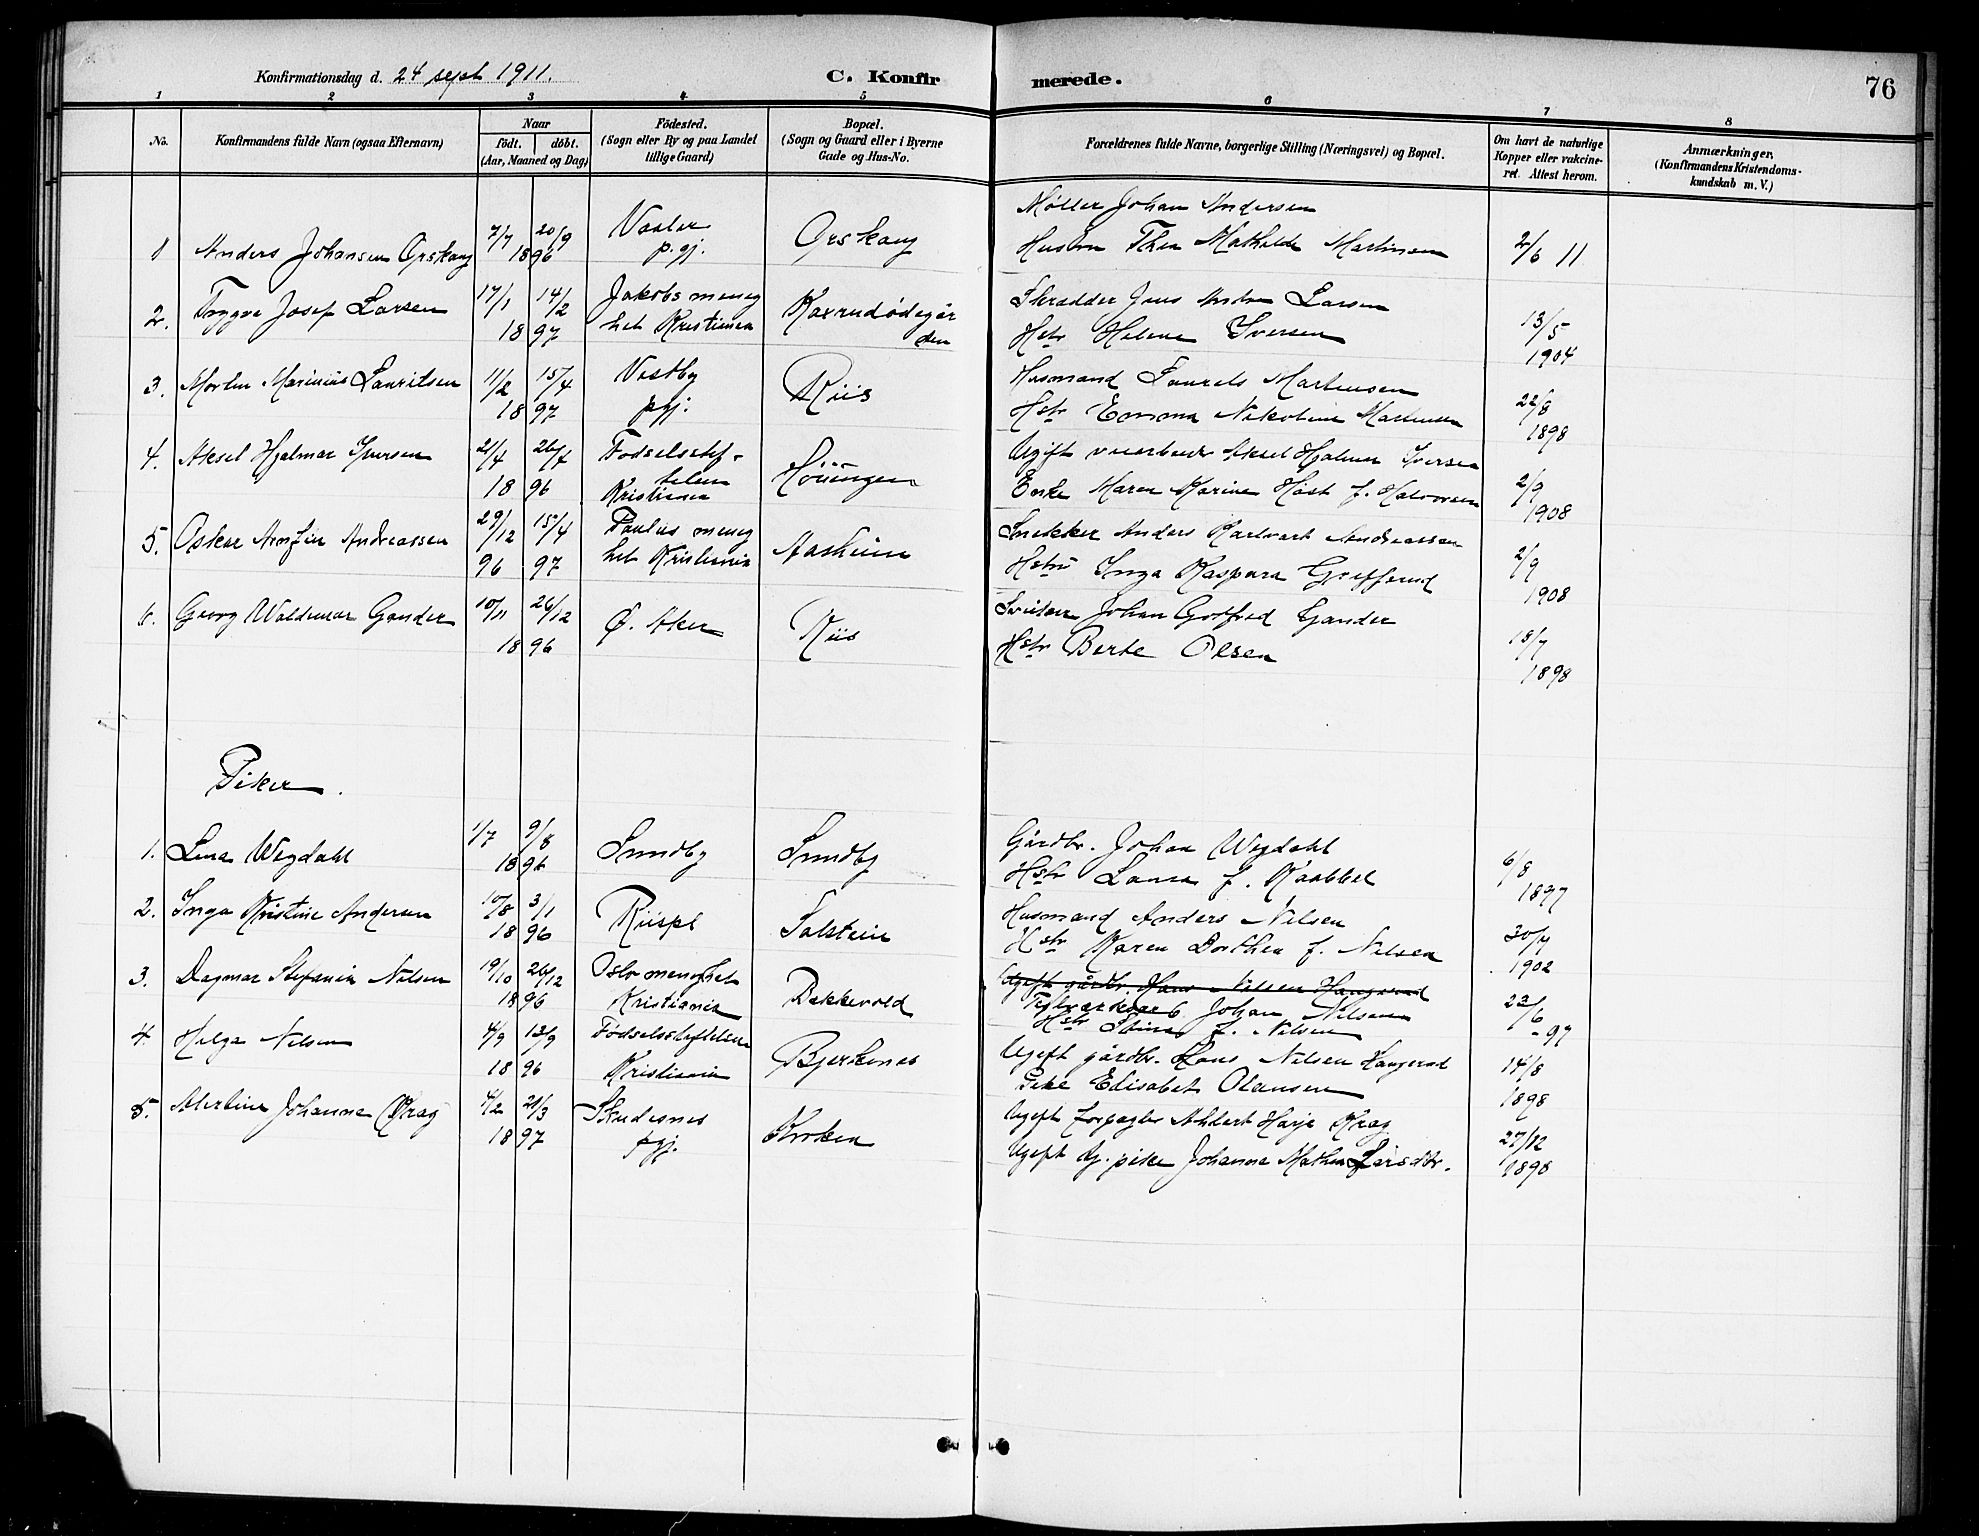 Konfirmationsdag d. 24 sept 1911.
C. Konfirmerede.
76
1 2 3 4 5 6 7 8
No.
Konfirmandens fulde Navn (ogsaa Efternavn)
Naar
födt. döbt.
(Aar, Maaned og Dag)
Födested.
(Sogn eller By og paa Landet
tillige Gaard)
Bopæl.
(Sogn og Gaard eller i Byerne
Gade og Hus-No.
Forældrenes fulde Navne, borgerlige Stilling (Næringsvei) og Bopæl.
Om havt de naturlige
Kopper eller vakcine-
ret. Attest herom.
Anmærkninger.
(Konfirmandens Kristendoms-
kundskab m. V.)
1 Anders Johansen Orskaug 7/7 20/9 1896 Vaaler p.gj. Orskaug
Møller Johan Andersen
Hustru Thea Mathilde Martinsen 2/6 11
2. Trygve Josef Larsen 17/1 14/2 1897 Jakobs menighet Kristiania
Skrædder Jens Larsen
Hstr Helene Iversen 13/5 1904
3. Martin Marinius Lauritsen 11/2 15/4 1897 Vestby pgj. Riis
Husmand Laurits Martinsen
Hstr Emma Nikoline Martinsen 22/8 1898
4. Aksel Hjalmar Iversen 21/4 26/4 1896 Fødselsstiftelsen Kristiania
Ugift Aksel Hjalmar Iversen
Enke Maren Karine Høst f. Halvorsen 2/9 1908
5. Oskar Arnfin Andreassen 29/12 96 15/4 97 Paulus menighet Kristiania Aasheim
Snekker Anders Andreassen
Hstru Inga Kaspara 2/9 1908
6. Georg Waldemar Gander 10/11 26/12 1896 Ø. Aker Riis
Johan Gotfred Gander
Hstr Berte Olsen 18/7 1898
Piker.
1. Lina Wegdahl 1/7 9/8 1896 Sundby Sundby
Gårdbr. Johan Wegdahl
Hstr Laura f. Kaabbel 6/8 1897
2. Inga Kristine Andersen 10/8 3/1 1896 Riispl Solstein
Husmand Anders Nilsen
Hstr Karen Dorthea f. Nilsen 30/7 1902
3. Dagmar Stefania Nilsen 19/10 26/12 1896 Oslo menighet Kristiania Bakkevold
Ugift gårdbr. Hans Nilsen Haugerud
Teglværksarb. Johan Nilsen
Hstr Stina f. Nilsen 23/6 - 97
4. Helga Nilsen 4/9 13/9 1896 Fødselsstiftelsen Kristiania Bjerkenes
Ugift gårdbr. Hans Nilsen Haugerud
Pike Elisabet Olausen 14/8 1898
5. Alertine Johanna Krag 4/2 21/3 1897 Skudesnes pgj. Kroken
Ugift forpagter Ahlert Harje Krag
Ugift tj. pike Johanna Mathea Larsdtr. 27/12 1898